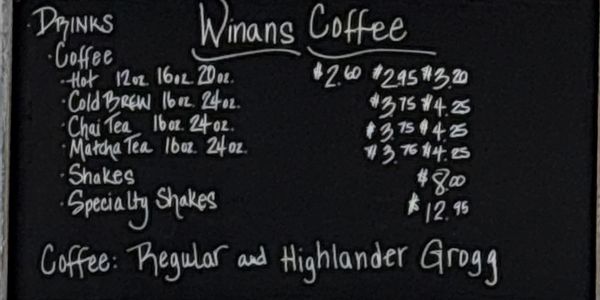 · DRINKS Winans Coffee
· Coffee
· Hot 12oz. 16oz. 20oz. $2.60 $2.95 $3.20
· Cold BREW 16oz. 24oz. $3.75 $4.25
· Chai Tea 16oz. 24oz. $3.75 $4.25
· Matcha Tea 16oz. 24oz. $3.75 $4.25
· Shakes $8.00
· Specialty Shakes $12.95
Coffee: Regular and Highlander Grogg